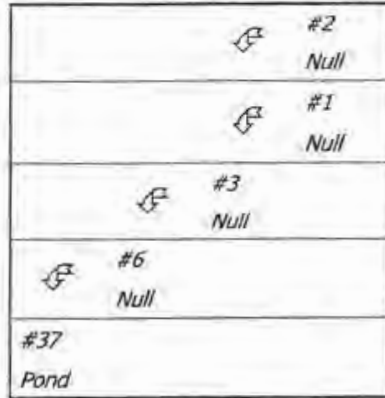 #2
Null
#1
Null
#3
Null
#6
Null
#37
Pond